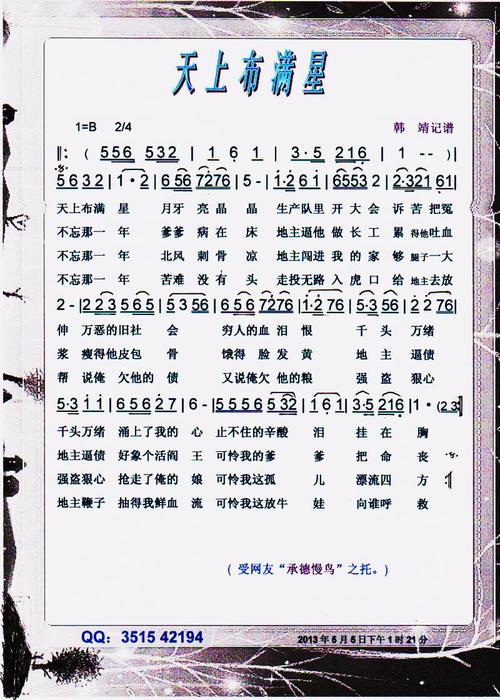 天上布满星
1=B 2/4 韩 靖记谱
‖: ( 556 532 | 1 6 1 | 3·5 216 | 1 -- ) |
5632 | 1·2 | 656 7276 | 5- | 1·2 61 | 6553 2 | 2·321 61 |
天上布满 星 月牙 亮晶 晶 生产队里 开大会 诉苦把冤
不忘那一 年 爹爹 病在 床 地主逼他 做长工 累得他吐血
不忘那一 年 北风 刺骨 凉 地主闯进 我的家 够腿子一大
不忘那一 年 苦难 没有 头 走投无路 入虎口 给地主去放
2- | 223 565 | 5356 | 656 7276 | 1·2 76 | 5·3 56 | 22 76 |
伸 万恶的旧社 会 穷人的血 泪恨 千头 万绪
浆 瘦得他皮包 骨 饿得 脸发 黄 地主 逼债
帮 说俺 欠他的 债 又说俺欠 他的粮 强盗 狠心
5·3 11 | 656 27 | 6- | 5556 532 | 1 6 1 | 3·5 216 | 1· (23
千头万绪 涌上了我的 心 止不住的辛酸 泪 挂在 胸
地主逼债 好象个活阎 王 可怜我的爹 爹 把命 丧
强盗狠心 抢走了俺的 娘 可怜我这孤 儿 漂流四 方
地主鞭子 抽得我鲜血 流 可怜我这放牛 娃 向谁呼 救
( 受网友“承德慢鸟”之托。)
QQ: 3515 42194 2013 年 5 月 5 日下午 1 时 21 分